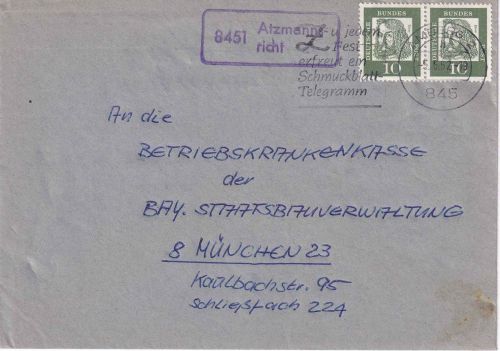 8451 Atzmanns-
richt
u jedem
Fest
erfreut ein
Schmuckblatt
Telegramm
BUNDES
10
10
845
An die
BETRIEBSKRANKENKASSE
der
BAY. STAATSBAUVERWALTUNG
8 MÜNCHEN 23
Kaulbachstr. 95
Schließfach 224